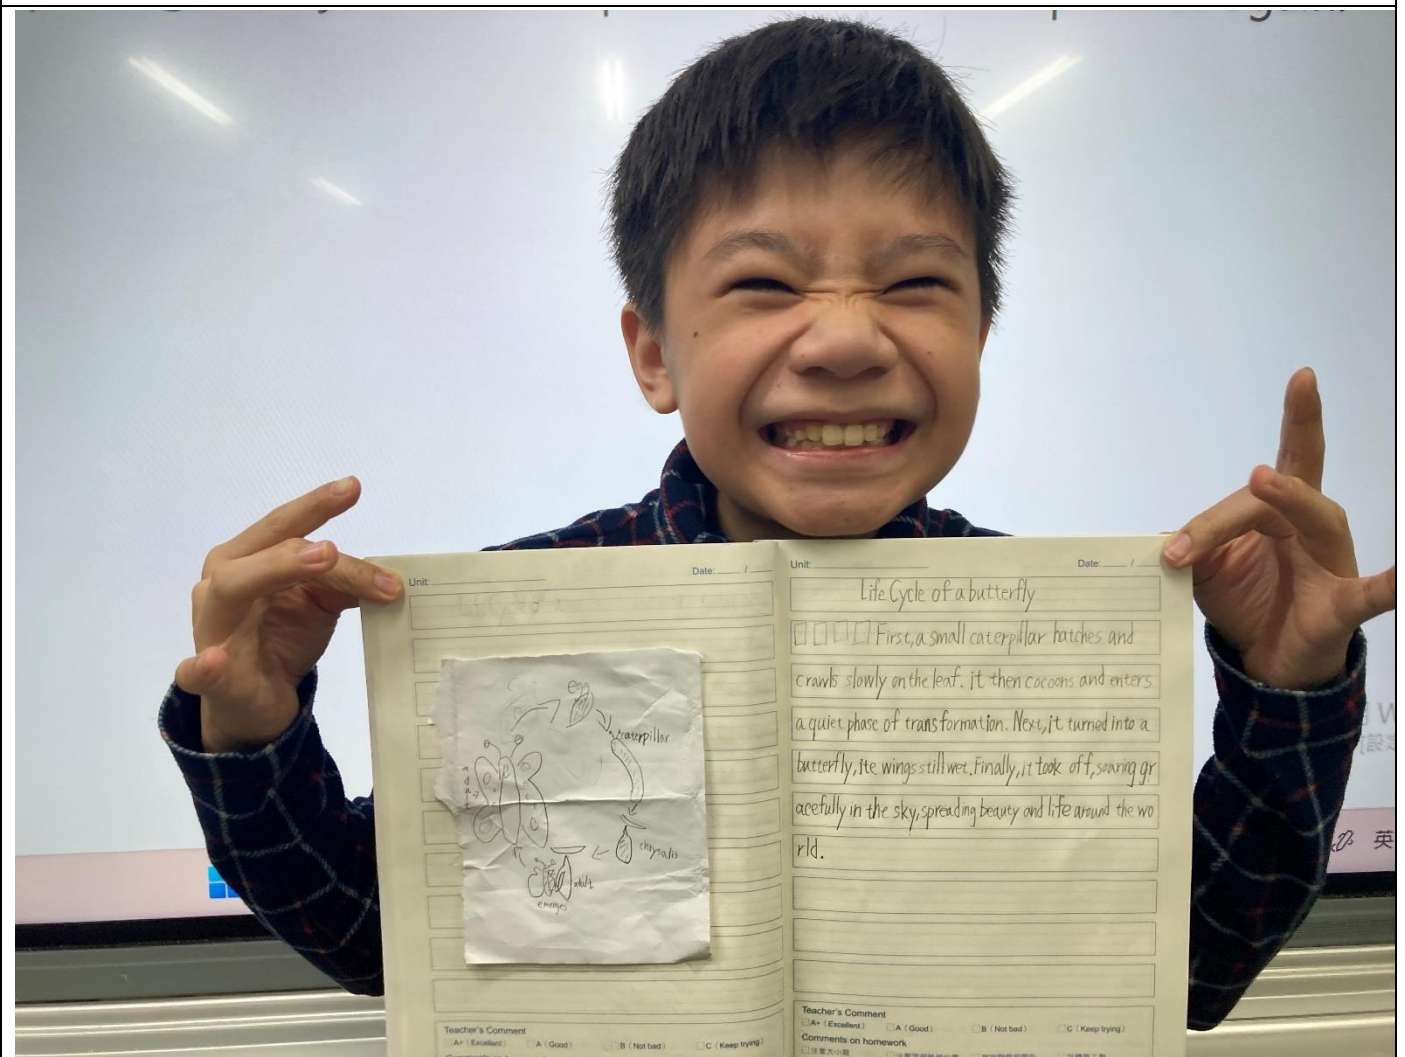 Unit:
Date: /
egg
caterpillar
chrysalis
adult
emerges
adult
Teacher's Comment
A+ (Excellent) A (Good) B (Not bad) C (Keep trying)
Unit:
Date: /
Life Cycle of a butterfly
First, a small caterpillar hatches and
crawls slowly on the leaf. it then cocoons and enters
a quiet phase of transformation. Next, it turned into a
butterfly, ite wings still wet. Finally, it took off, soaring gr
acefully in the sky, spreading beauty and life around the wo
rld.
Teacher's Comment
A+ (Excellent) A (Good) B (Not bad) C (Keep trying)
Comments on homework
注意大小寫
英